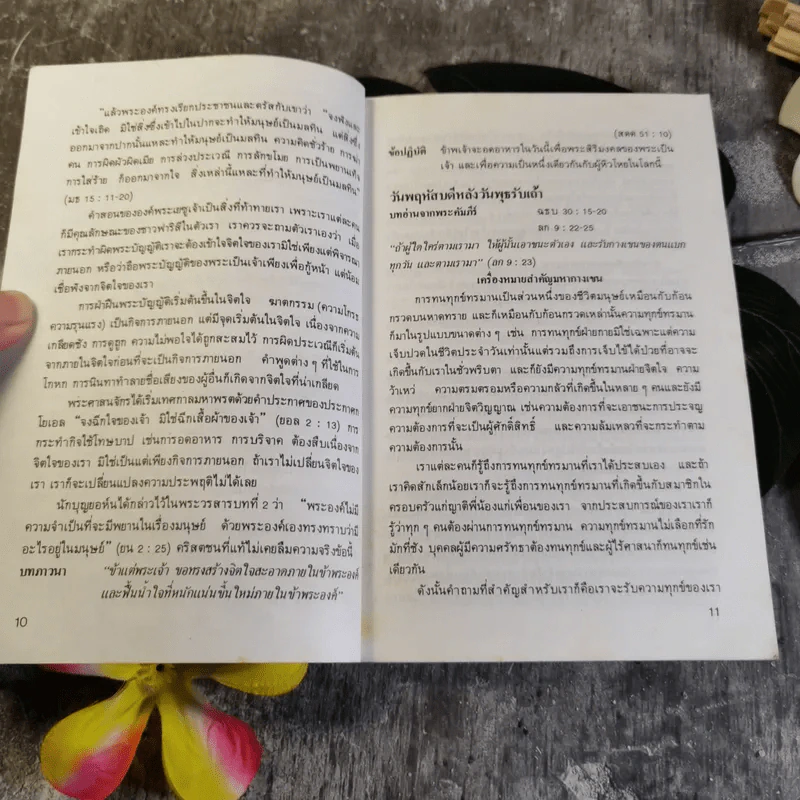 "แล้วพระองค์ทรงเรียกประชาชนและตรัสกับเขาว่า "จงฟังและ
เข้าใจเถิด มิใช่สิ่งซึ่งเข้าไปในปากจะทำให้มนุษย์เป็นมลทิน แต่สิ่งซึ่ง
ออกมาจากปากนั้นแหละทำให้มนุษย์เป็นมลทิน ความคิดชั่วร้าย การฆ่า
คน การผิดผัวผิดเมีย การล่วงประเวณี การลักขโมย การเป็นพยานเท็จ
การใส่ร้าย ก็ออกมาจากใจ สิ่งเหล่านี้แหละที่ทำให้มนุษย์เป็นมลทิน"
(มธ 15 : 11-20)
คำสอนขององค์พระเยซูเจ้าเป็นสิ่งที่ท้าทายเรา เพราะเราแต่ละคน
ก็มีคุณลักษณะของชาวฟาริสีในตัวเรา เราควรจะถามตัวเราเองว่า เมื่อ
เรากระทำผิดพระบัญญัติเราจะต้องเข้าใจจิตใจของเรามิใช่เพียงแต่พิจารณา
ภายนอก หรือว่าถือพระบัญญัติของพระเป็นเจ้าเพียงเพื่อกู้หน้า แต่น้อม
เชื่อฟังจากจิตใจของเรา
การฝ่าฝืนพระบัญญัติเริ่มต้นขึ้นในจิตใจ ฆาตกรรม (ความโกรธ
ความรุนแรง) เป็นกิจการภายนอก แต่มีจุดเริ่มต้นในจิตใจ เนื่องจากความ
เกลียดชัง การดูถูก ความไม่พอใจได้ถูกสะสมไว้ การผิดประเวณีก็เริ่มต้น
จากภายในจิตใจก่อนที่จะเป็นกิจการภายนอก คำพูดต่าง ๆ ที่ใช้ในการ
โกหก การนินทาทำลายชื่อเสียงของผู้อื่นก็เกิดจากจิตใจที่น่าเกลียด
พระศาสนจักรได้เริ่มเทศกาลมหาพรตด้วยคำประกาศของประกาศก
โยเอล "จงฉีกใจของเจ้า มิใช่ฉีกเสื้อผ้าของเจ้า" (ยอล 2 : 13) การ
กระทำกิจใช้โทษบาป เช่นการอดอาหาร การบริจาค ต้องสืบเนื่องจาก
จิตใจของเรา มิใช่เป็นแต่เพียงกิจการภายนอก ถ้าเราไม่เปลี่ยนจิตใจของ
เรา เราก็จะเปลี่ยนแปลงความประพฤติไม่ได้เลย
นักบุญยอห์นได้กล่าวไว้ในพระวรสารบทที่ 2 ว่า "พระองค์ไม่มี
ความจำเป็นที่จะมีพยานในเรื่องมนุษย์ ด้วยพระองค์เองทรงทราบว่ามี
อะไรอยู่ในมนุษย์" (ยน 2 : 25) คริสตชนที่แท้ไม่เคยลืมความจริงข้อนี้
บทภาวนา "ข้าแต่พระเจ้า ขอทรงสร้างจิตใจสะอาดภายในข้าพระองค์
และฟื้นน้ำใจที่หนักแน่นขึ้นใหม่ภายในข้าพระองค์"
10
(สดด 51 : 10)
ข้อปฏิบัติ ข้าพเจ้าจะอดอาหารในวันนี้เพื่อพระสิริมงคลของพระเป็น
เจ้า และเพื่อความเป็นหนึ่งเดียวกันกับผู้หิวโหยในโลกนี้
วันพฤหัสบดีหลังวันพุธรับเถ้า
บทอ่านจากพระคัมภีร์ ฉธบ 30 : 15-20
ลก 9 : 22-25
"ถ้าผู้ใดใคร่ตามเรามา ให้ผู้นั้นเอาชนะตัวเอง และรับกางเขนของตนแบก
ทุกวัน และตามเรามา" (ลก 9 : 23)
เครื่องหมายสำคัญมหากางเขน
การทนทุกข์ทรมานเป็นส่วนหนึ่งของชีวิตมนุษย์เหมือนกับก้อน
กรวดบนหาดทราย และก็เหมือนกับก้อนกรวดเหล่านั้นความทุกข์ทรมาน
ก็มาในรูปแบบขนาดต่าง ๆ เช่น การทนทุกข์ฝ่ายกายมิใช่เฉพาะแต่ความ
เจ็บปวดในชีวิตประจำวันเท่านั้นแต่รวมถึงการเจ็บไข้ได้ป่วยที่อาจจะ
เกิดขึ้นกับเราในชั่วพริบตา และก็ยังมีความทุกข์ทรมานฝ่ายจิตใจ ความ
ว้าเหว่ ความตรมตรอมหรือความกลัวที่เกิดขึ้นในหลาย ๆ คนและยังมี
ความทุกข์ยากฝ่ายจิตวิญญาณ เช่นความต้องการที่จะเอาชนะการประจญ
ความต้องการที่จะเป็นผู้ศักดิ์สิทธิ์ และความล้มเหลวที่จะกระทำตาม
ความต้องการนั้น
เราแต่ละคนก็รู้ถึงการทนทุกข์ทรมานที่เราได้ประสบเอง และถ้า
เราคิดสักเล็กน้อยเราก็จะรู้ถึงการทนทุกข์ทรมานที่เกิดขึ้นกับสมาชิกใน
ครอบครัวแก่ญาติพี่น้องแก่เพื่อนของเรา จากประสบการณ์ของเราเราก็
รู้ว่าทุก ๆ คนต้องผ่านการทนทุกข์ทรมาน ความทุกข์ทรมานไม่เลือกที่รัก
มักที่ชัง บุคคลผู้มีความศรัทธาต้องทนทุกข์และผู้ไร้ศาสนาก็ทนทุกข์เช่น
เดียวกัน
ดังนั้นคำถามที่สำคัญสำหรับเราก็คือเราจะรับความทุกข์ของเรา
11